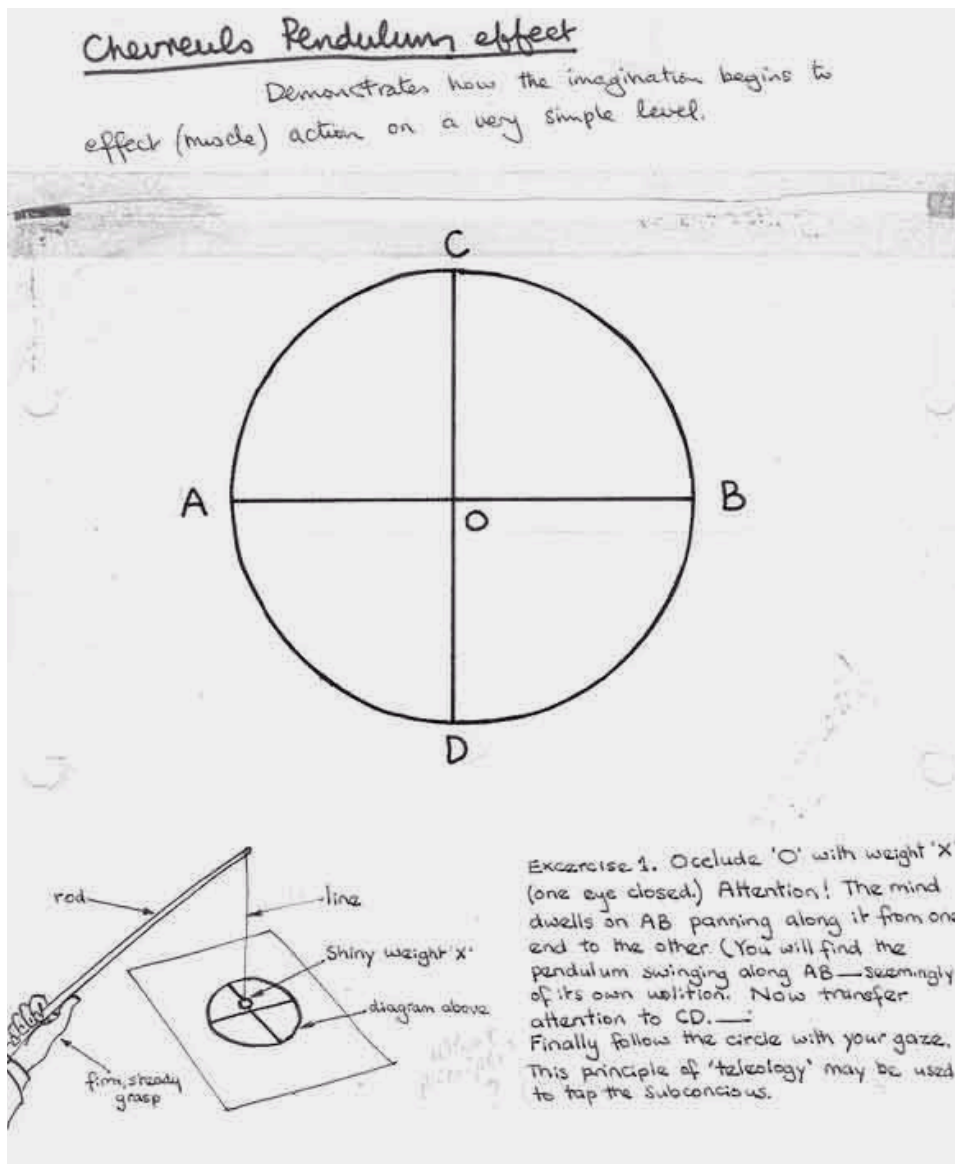 Chevreuls Pendulum effect
Demonstrates how the imagination begins to
effect (muscle) action on a very simple level.
C
A
B
O
D
rod
line
Shiny weight 'X'
diagram above
firm, steady
grasp
Excercise 1. Occlude 'O' with weight 'X'
(one eye closed.) Attention! The mind
dwells on AB panning along it from one
end to the other. (You will find the
pendulum swinging along AB — seemingly
of its own volition. Now transfer
attention to CD. —:
Finally follow the circle with your gaze.
This principle of 'teleology' may be used
to tap the subconcious.